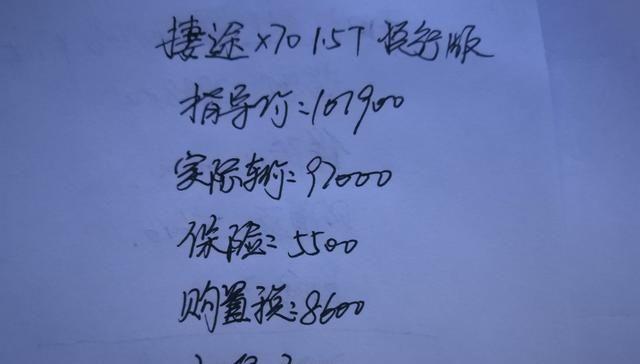 捷途X70 1.5T 悦行版
指导价:107900
实际车价:97000
保险:5500
购置税:8600